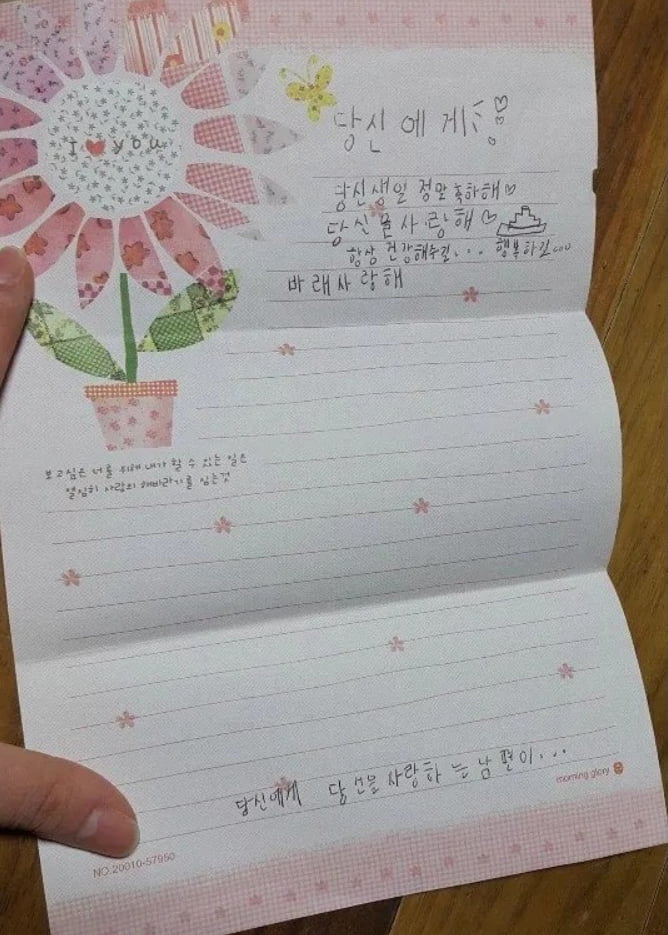 I ♥ you
당신에게
당신생일 정말 축하해♡
당신을사랑해♡
항상 건강해주길... 행복하길...
바래사랑해
보고싶은 너를 위해 내가 할 수 있는 일은
열심히 사랑의 해바라기를 심는것
당신에게 사랑하는남편이...
morning glory
NO.20010-57950